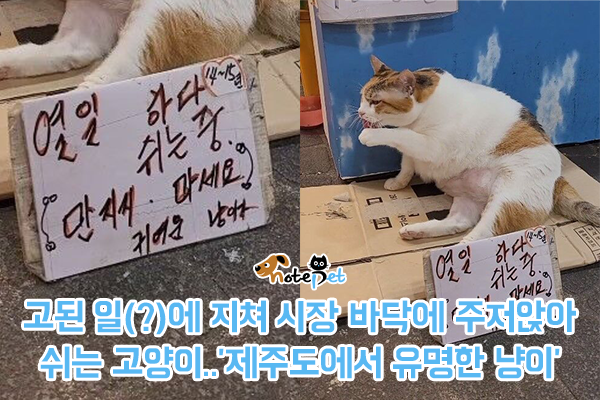 열일 하다 14~15년
쉬는 중.
만지지. 마세요.
귀여운 냥이
열일 하다 14~15년
쉬는 중.
마세요.
notepet
고된 일(?)에 지쳐 시장 바닥에 주저앉아
쉬는 고양이..'제주도에서 유명한 냥이'